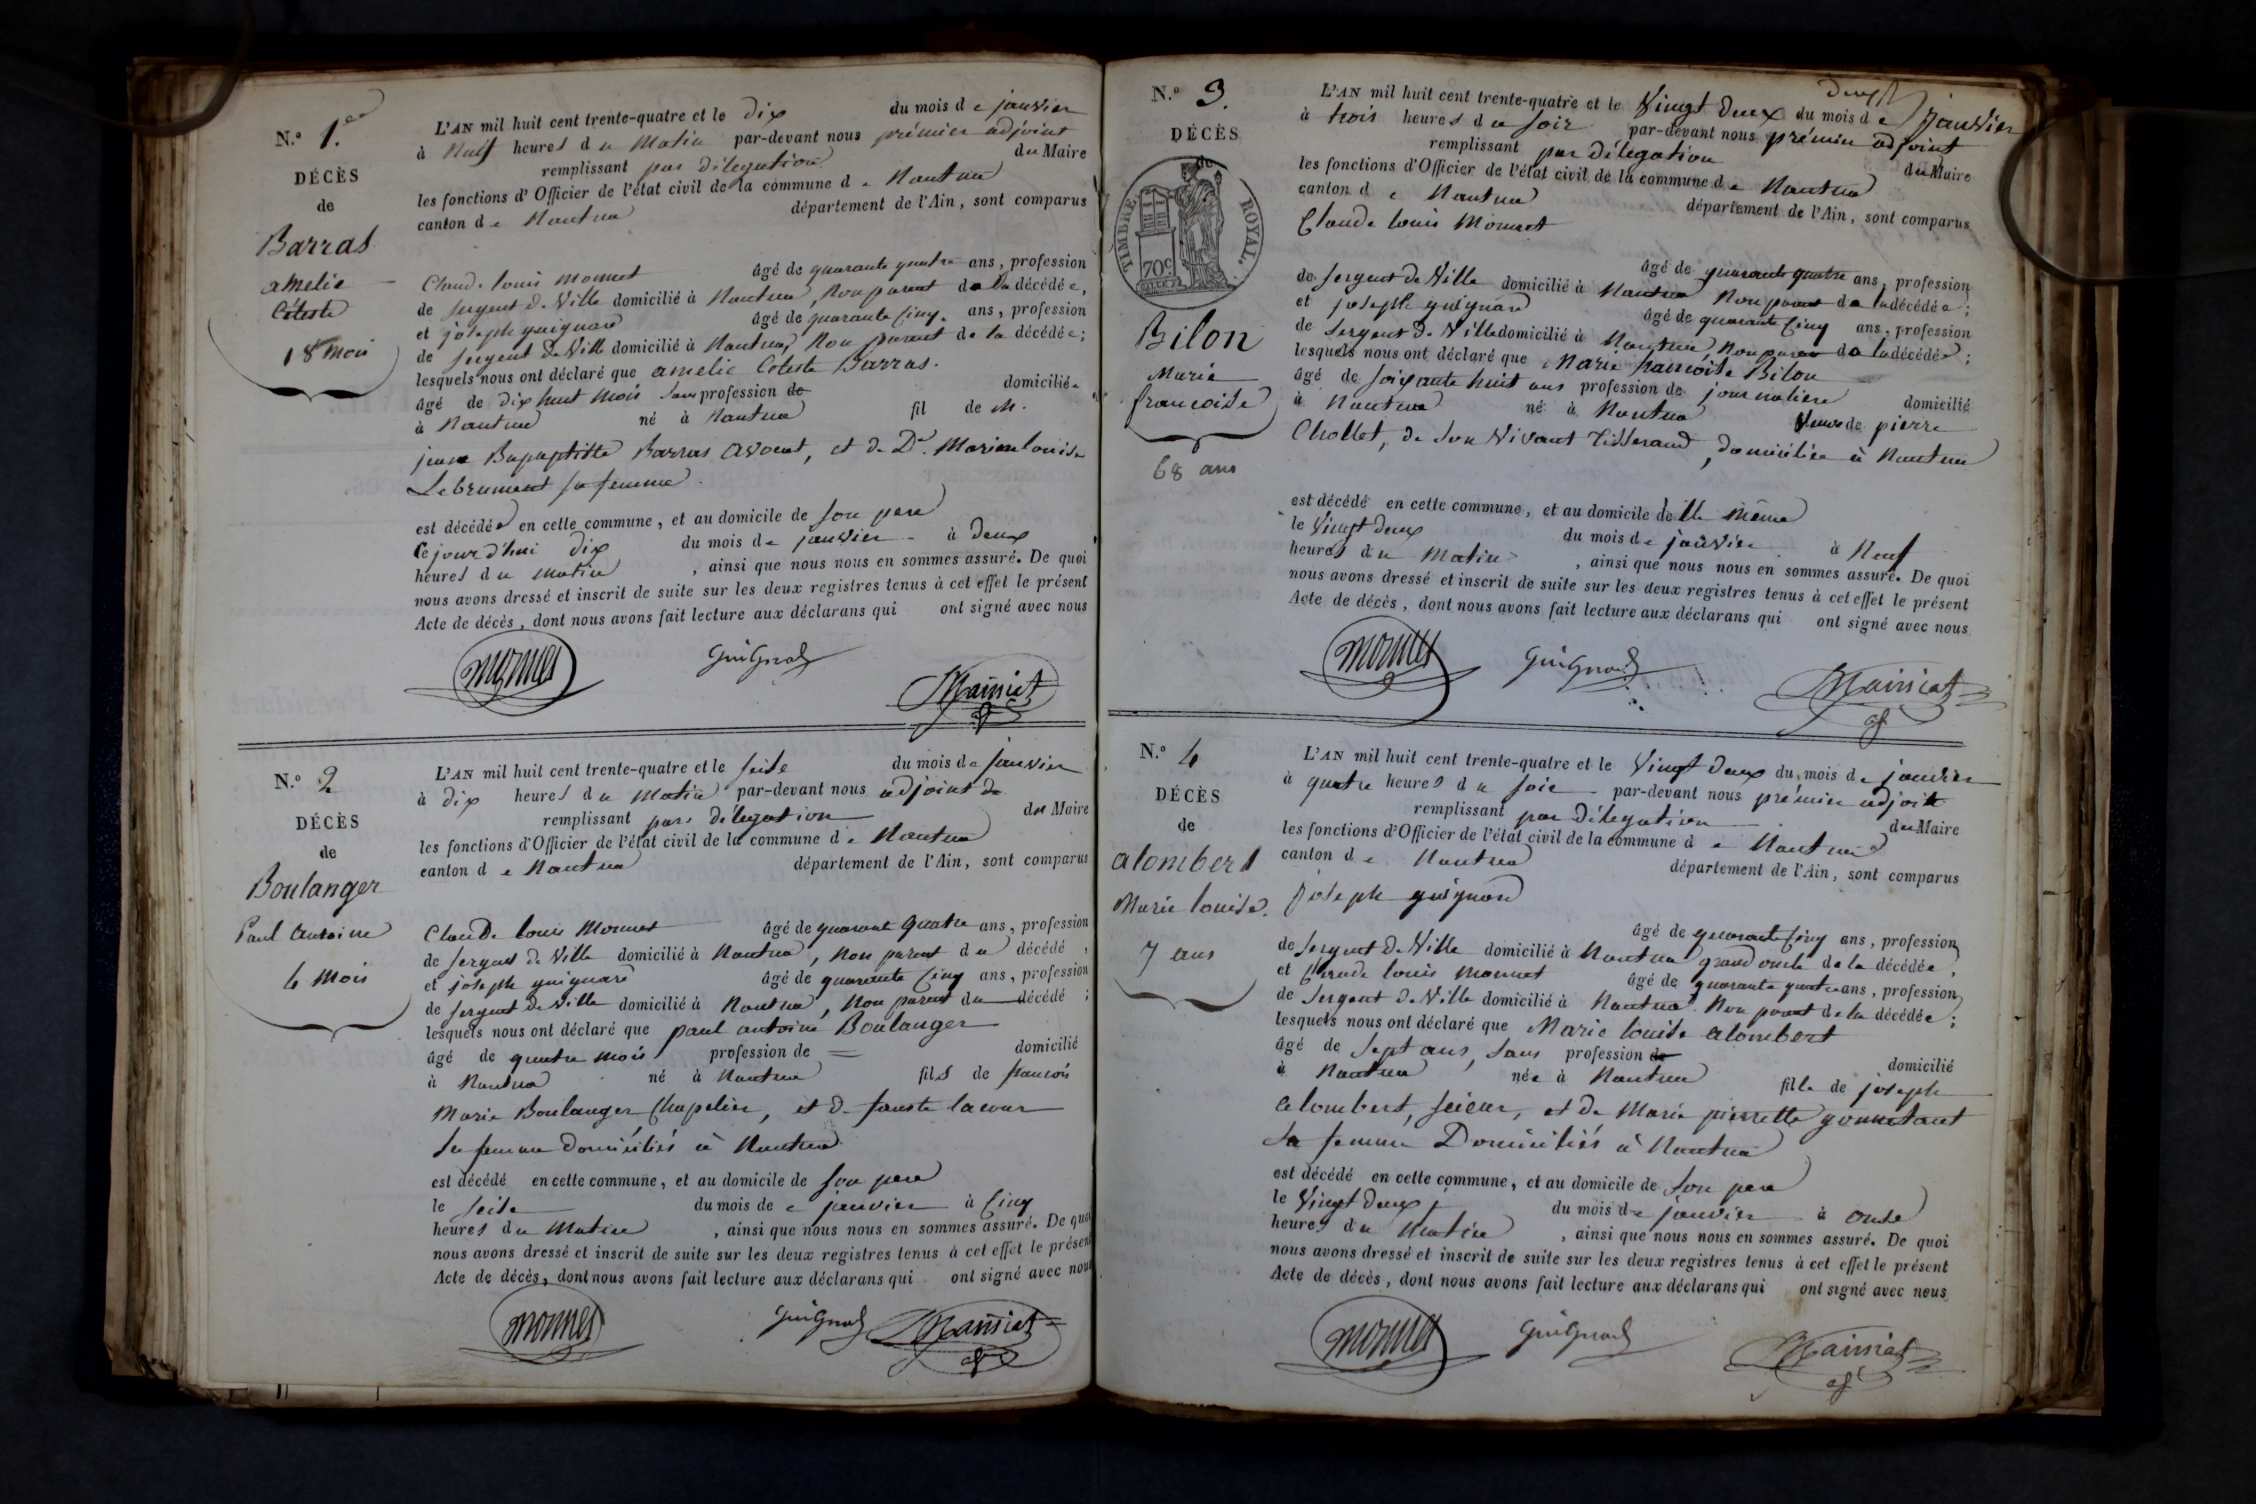 N.º 1.er
DÉCÈS
de
Barras
amelie
Céleste
18 mois
L'AN mil huit cent trente-quatre et le dix du mois de janvier
à Neuf heures du Matin par-devant nous prémier adjoint
remplissant par délegation du Maire
les fonctions d'Officier de l'état civil de la commune de Nantua
canton de Nantua département de l'Ain, sont comparus
Claude louis Monnet âgé de quarante quatre ans, profession
de sergent de Ville domicilié à Nantua, Non parent de la décédée,
et joseph guignard âgé de quarante Cinq ans, profession
de sergent de Ville domicilié à Nantua, Non parent de la décédée;
lesquels nous ont déclaré que amelie Céleste Barras.
âgé de dix huit mois sans profession de domiciliée
à Nantua né à Nantua fil de M.
jean Bapaptiste Barras avouet, et de De. Marie louise
Lebrument sa femme.
est décédée en cette commune, et au domicile de son pere
Ce jourd'hui dix du mois de janvier à deux
heures du matin, ainsi que nous nous en sommes assuré. De quoi
nous avons dressé et inscrit de suite sur les deux registres tenus à cet effet le présent
Acte de décès, dont nous avons fait lecture aux déclarans qui ont signé avec nous
monnet Guignard Mainiat
N.º 2
DÉCÈS
de
Boulanger
Paul Antoine
4 mois
L'AN mil huit cent trente-quatre et le seise du mois de janvier
à dix heures du matin par-devant nous adjoint de
remplissant par délegation du Maire
les fonctions d'Officier de l'état civil de la commune de Nantua
canton de Nantua département de l'Ain, sont comparus
Claude louis Monnet âgé de quarante quatre ans, profession
de sergent de Ville domicilié à Nantua, Non parent du décédé,
et joseph guignard âgé de quarante Cinq ans, profession
de sergent de Ville domicilié à Nantua, Non parent du décédé;
lesquels nous ont déclaré que paul antoine Boulanger
âgé de quatre mois profession de = domicilié
à Nantua né à Nantua fils de francois
Marie Boulanger Chapelier, et de fauste lacour
sa femme domiciliés à Nantua
est décédé en cette commune, et au domicile de son pere
le seise du mois de janvier à Cinq
heures du Matin, ainsi que nous nous en sommes assuré. De quoi
nous avons dressé et inscrit de suite sur les deux registres tenus à cet effet le présent
Acte de décès, dont nous avons fait lecture aux déclarans qui ont signé avec nous
monnet Guignard Mainiat
N.º 3.
DÉCÈS
de
TIMBRE ROYAL.
70c
Bilon
Marie
francoise
68 ans
L'AN mil huit cent trente-quatre et le Vingt deux du mois de Janvier
à trois heures du soir par-devant nous prémier adjoint
remplissant par délegation du Maire
les fonctions d'Officier de l'état civil de la commune de Nantua
canton de Nantua département de l'Ain, sont comparus
Claude louis Monnet
âgé de quarante quatre ans, profession
de sergent de Ville domicilié à Nantua Non parent de la décédée;
et joseph guignard âgé de quarante Cinq ans, profession
de sergent de Ville domicilié à Nantua, Non parent de la décédée;
lesquels nous ont déclaré que Marie francoise Bilon
âgé de soixante huit ans profession de journaliere domicilié
à Nantua né à Nantua Veuve de pierre
Chollet, de son Vivant Tisserand, domiciliée à Nantua
est décédé en cette commune, et au domicile d'elle même
le Vingt deux du mois de janvier à Neuf
heures du Matin, ainsi que nous nous en sommes assuré. De quoi
nous avons dressé et inscrit de suite sur les deux registres tenus à cet effet le présent
Acte de décès, dont nous avons fait lecture aux déclarans qui ont signé avec nous
monnet Guignard Mainiat
N.º 4
DÉCÈS
de
alombert
Marie louise.
7 ans
L'AN mil huit cent trente-quatre et le Vingt deux du mois de janvier
à quatre heures du soir par-devant nous prémier adjoit
remplissant par délegation du Maire
les fonctions d'Officier de l'état civil de la commune de Nantua
canton de Nantua département de l'Ain, sont comparus
joseph guignard
âgé de quarante Cinq ans, profession
de sergent de Ville domicilié à Nantua grand oncle de la décédée,
et Claude louis Monnet âgé de quarante quatre ans, profession
de sergent de Ville domicilié à Nantua Non parent de la décédée;
lesquels nous ont déclaré que Marie louise alombert
âgé de sept ans, sans profession de domicilié
à Nantua née à Nantua fille de joseph
alombert, scieur, et de Marie pierrette gonnetant
sa femme Domiciliés à Nantua
est décédé en cette commune, et au domicile de son pere
le Vingt deux du mois de janvier à onse
heures du Matin, ainsi que nous nous en sommes assuré. De quoi
nous avons dressé et inscrit de suite sur les deux registres tenus à cet effet le présent
Acte de décès, dont nous avons fait lecture aux déclarans qui ont signé avec nous
monnet Guignard Mainiat